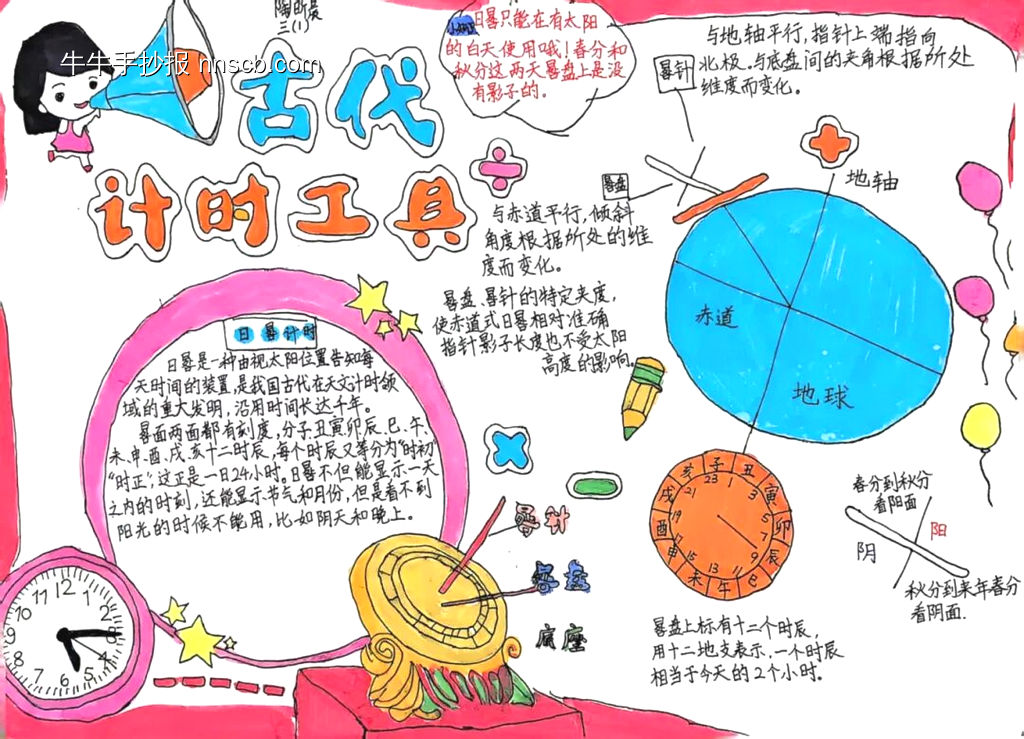 陶
三(1)
牛牛手抄报 nnscb.com
古代
计时工具
日晷只能在有太阳
的白天使用哦！春分和
秋分这两天晷盘上是没
有影子的。
晷针
与地轴平行，指针上端指向
北极。与底盘间的夹角根据所处
维度而变化。
晷盘
与赤道平行，倾斜
角度根据所处的维
度而变化。
晷盘、晷针的特定夹度，
使赤道式日晷相对准确
指针影子长度也不受太阳
高度的影响。
地轴
赤道
地球
日晷计时
日晷是一种由视太阳位置告知每
天时间的装置，是我国古代在天文计时领
域的重大发明，沿用时间长达千年。
晷面两面都有刻度，分子、丑寅卯辰、巳、午、
未、申、酉、戌、亥十二时辰，每个时辰又等分为"时初"
"时正"；这正是一日24小时。日晷不但能显示一天
之内的时刻，还能显示节气和月份，但是看不到
阳光的时候不能用，比如阴天和晚上。
晷针
晷盘
底座
子 丑 寅 卯 辰 巳 午 未 申 酉 戌 亥
23 1 3 5 7 9 11 13 15 17 19 21
晷盘上标有十二个时辰，
用十二地支表示，一个时辰
相当于今天的2个小时。
春分到秋分
看阳面
阳
阴
秋分到来年春分
看阴面.
12 1 2 3 4 5 6 7 8 9 10 11